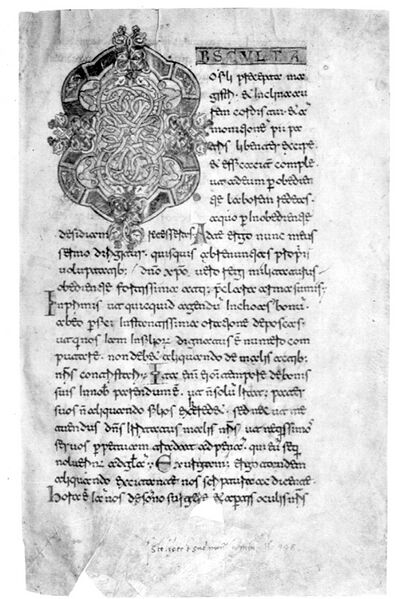 OBSCULTA
O fili precepta ma
gistri. & inclina au
rem cordis tui. & ad
monitionem pii pa
tris libenter excipe.
& efficaciter comple.
ut ad eum p obedien
tie laborem redeas.
a quo p inobedientie
desidiam recesseras. Ad te ergo nunc meus
sermo dirigitur. quisquis abrenuntians propriis
voluptatib; dno xpo vero regi militaturus.
obedientie fortissima atq; preclara arma sumis.
In primis ut quicquid agendu inchoas bonu.
ab eo perfici instantissima oratione deposcas.
ut qui nos iam in filior dignatus e numero com
putare. non debet aliquando de malis actib;
nris contristari. Ita eni ei omni tempore de bonis
suis in nob parendum e. ut n solu iratus pater
suos n aliquando filios exheredet. sed nec ut me
tuendus dns irritatus malis nris. ut nequissimos
servos perpetuam tradat ad pena. qui eu sequi
noluerint ad gla. Exurgam ergo tandem
aliquando excitante nos scriptura ac dicente.
Hora e iam nos de somno surgere. & apertis oculis nris